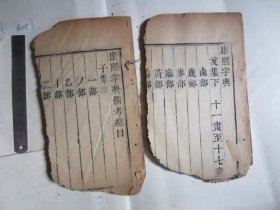 康熙字典
亥集下 十一畫至十七畫
鹵部
鹿部
麥部
麻部
黃部
黍部
康熙字典備考總目
子集
一部
丿部
乙部
二部